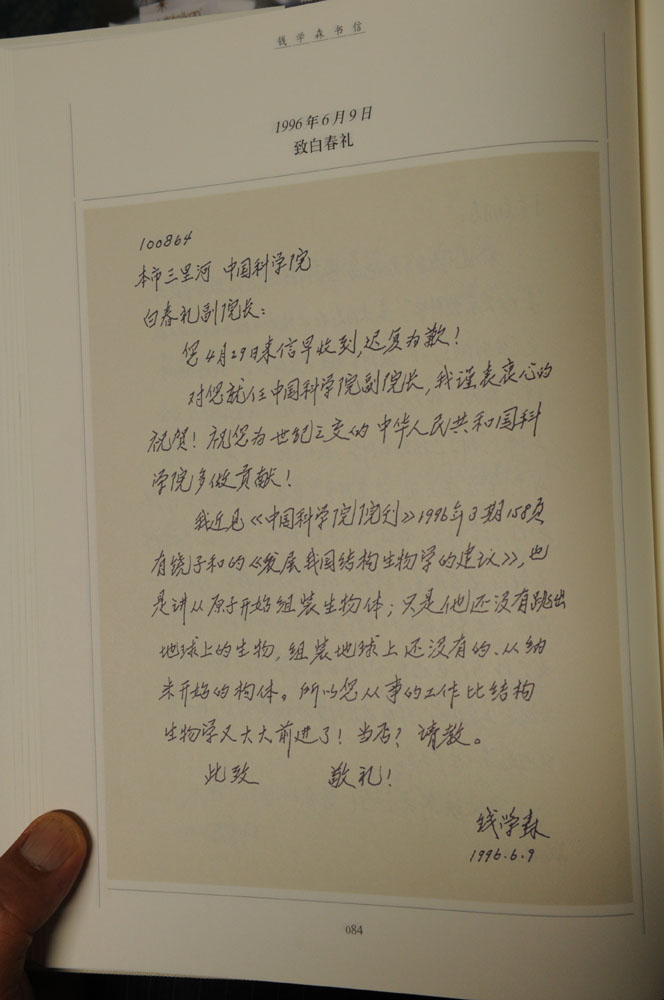 钱学森书信
1996年6月9日
致白春礼
100864
本市三里河 中国科学院
白春礼副院长：
您4月29日来信早收到，迟复为歉！
对您就任中国科学院副院长，我谨表衷心的
祝贺！祝您为世纪之交的中华人民共和国科
学院多做贡献！
我近见《中国科学院院刊》1996年3期158页
有饶子和的《发展我国结构生物学的建议》，也
是讲从原子开始组装生物体；只是他还没有跳出
地球上的生物，组装地球上还没有的、从纳
米开始的构体。所以您从事的工作比结构
生物学又大大前进了！当否？请教。
此致 敬礼！
钱学森
1996.6.9
084